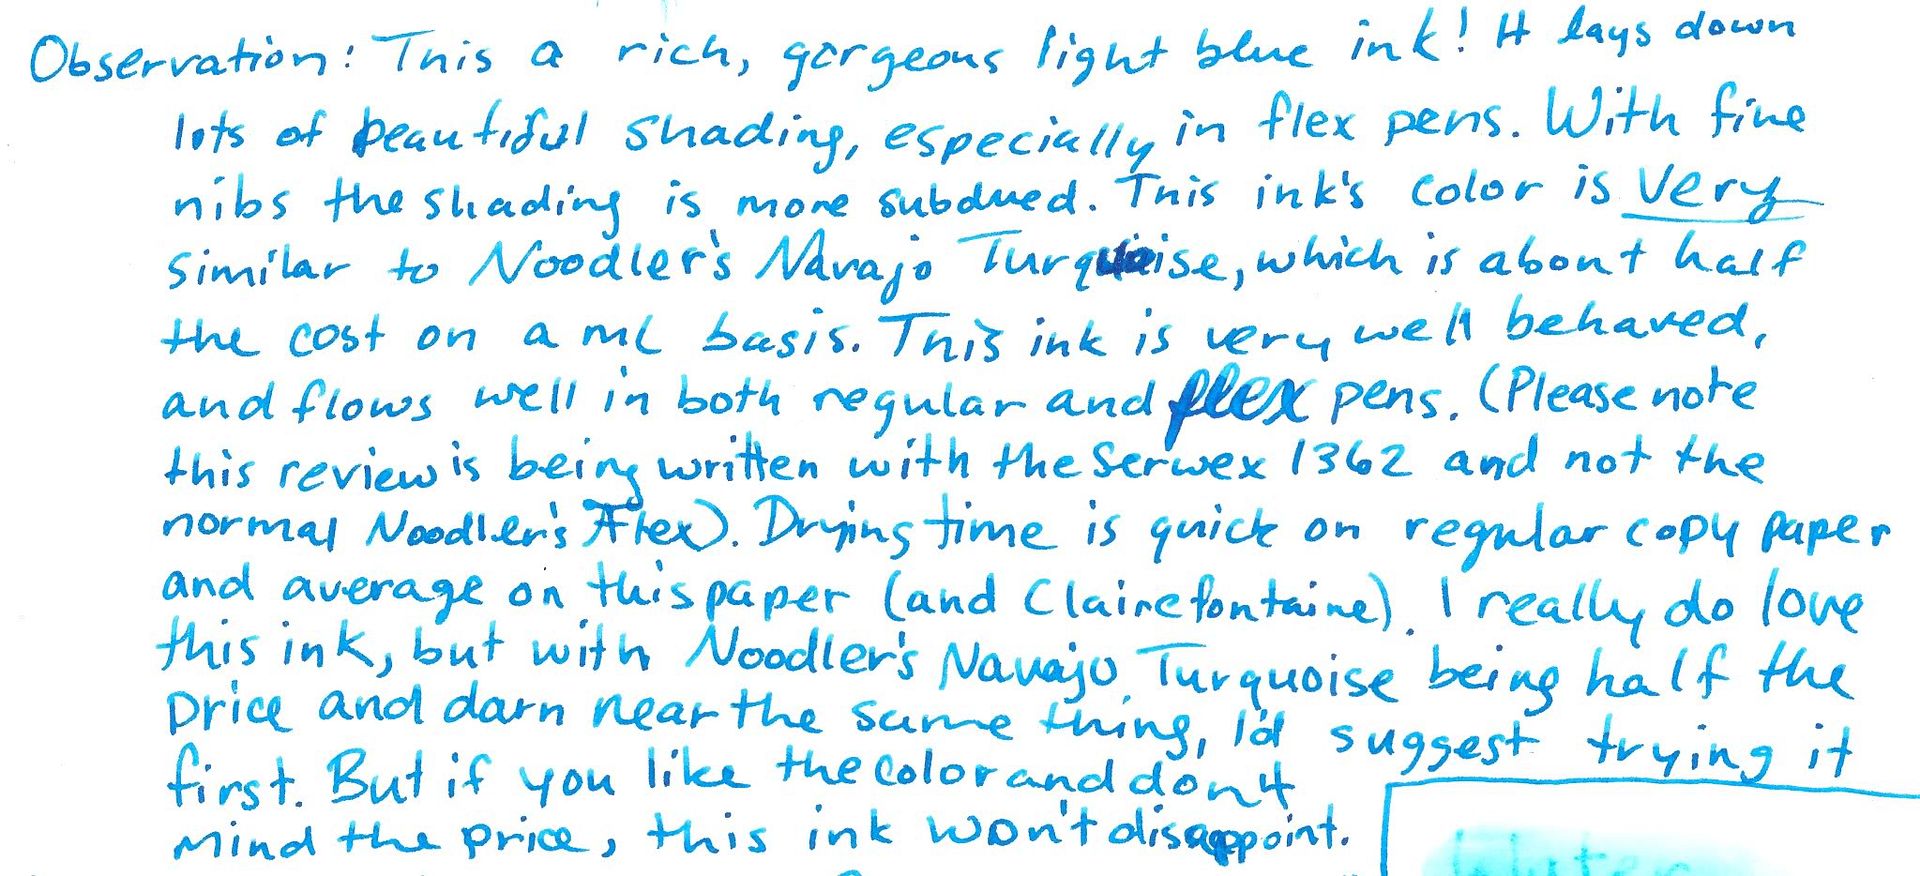 Observation: This a rich, gorgeous light blue ink! It lays down
lots of beautiful shading, especially in flex pens. With fine
nibs the shading is more subdued. This ink's color is very
similar to Noodler's Navajo Turquoise, which is about half
the cost on a mL basis. This ink is very well behaved,
and flows well in both regular and flex pens. (Please note
this review is being written with the Serwex 1362 and not the
normal Noodler's Flex). Drying time is quick on regular copy paper
and average on this paper (and Clairefontaine). I really do love
this ink, but with Noodler's Navajo Turquoise being half the
price and darn near the same thing, I'd suggest trying it
first. But if you like the color and don't
mind the price, this ink won't disappoint.